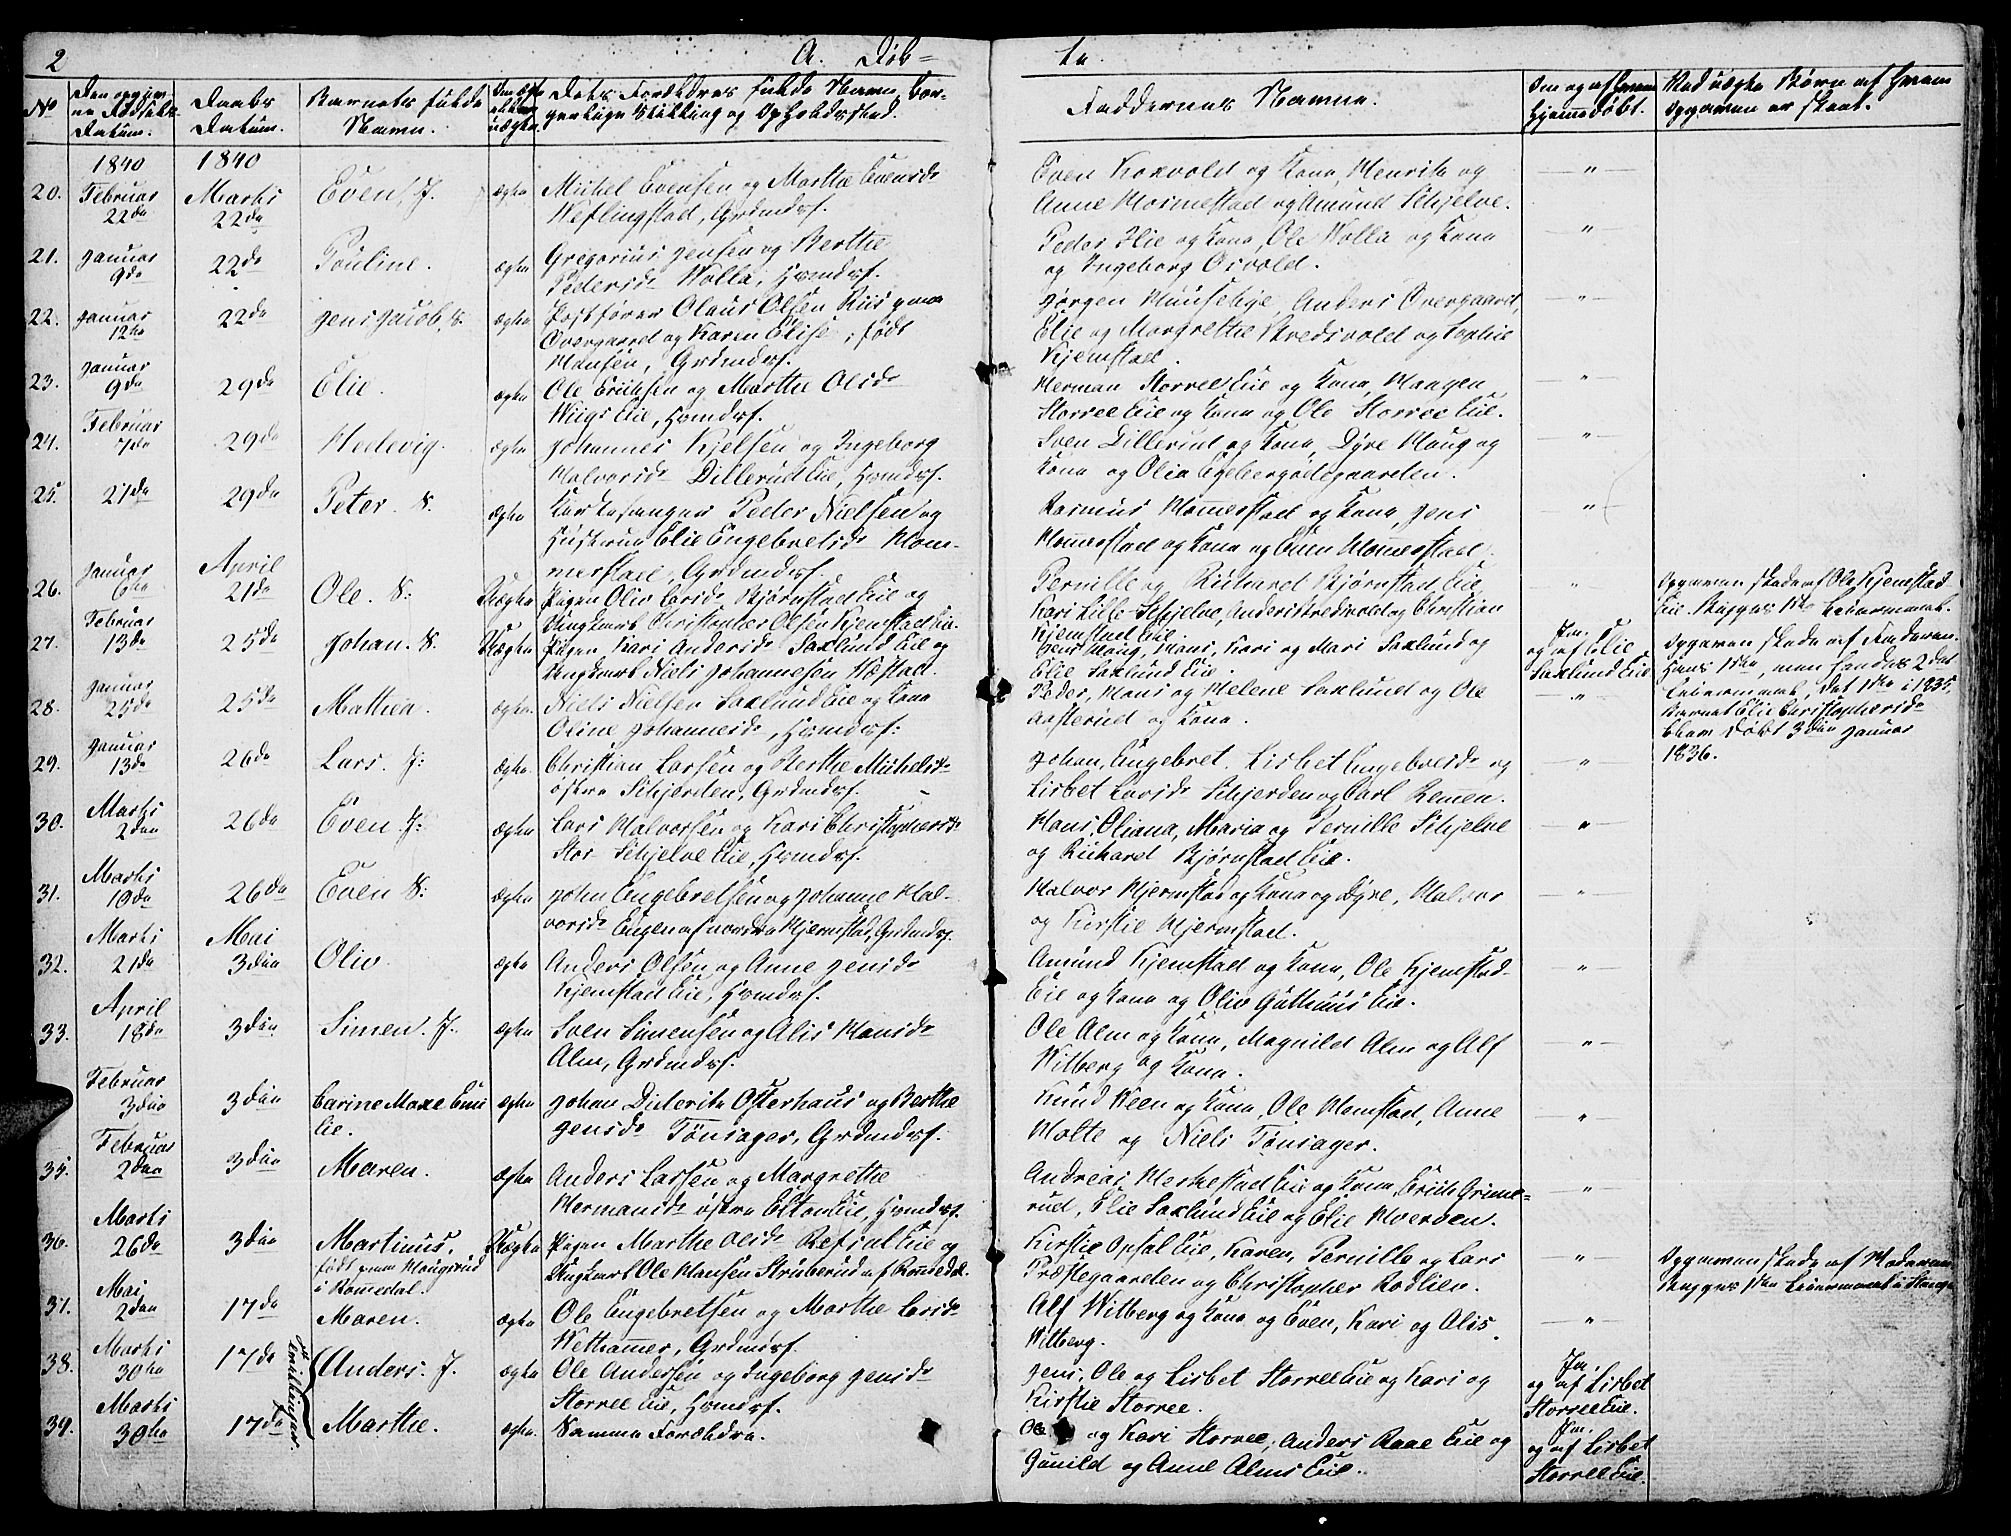 2
A. Døb-
te.
No
Den og
Datum.
Daabs
Datum.
Barnets fulde
Navn.
Dets Forældres fulde Navne, Bor-
gerlige Stilling og Opholdssted.
Faddernes Navne.
Om og af hvem
hjemmedøbt.
Ved uægte Børn af hvem
Opgaven er skeet.
1840
1840
20.
Februar
22de
Marts
22de
Even, J.
ægte
Michel Evensen og Marthe Evensd.
Weflingstad,
Even og Kone, Henrik og
Anne og Amund Schjelve.
21.
Januar
9de
22de
Pouline.
ægte
Gregorius Jensen og Berthe
Pedersd. Wolla,
Peder Ilie og Kone, Ole Wolla og Kone
og Ingeborg Osvold.
22.
Januar
12te
22de
Jens Jacob, S.
ægte
Olaus Olsen Riis
Overgaard og Karen Elise, født
Hansen,
Jørgen Anders Overgaard,
Elie og Margrethe og Sophie
Kjemstad.
23.
Januar
9de
29de
Elie.
ægte
Ole Eriksen og Marthe Olsd.
Wiigs Eie,
Herman Storree Eie og Kone, Haagen
Storree Eie og Kone og Ole Storree Eie.
24.
Februar
7de
29de
Hedevig.
ægte
Johannes Kjelsen og Ingeborg
Halvorsd. Dillerud Eie,
Sven Dillerud og Kone, Dyre Haug og
Kone og Olia
25.
21de
29de
Peter. S.
ægte
Kirkesanger Peder Nielsen og
Hustrue Elie Engebretsd. Hom-
merstad,
Rasmus Hommerstad og Kone, Jens
Hommerstad og Kone og Even Hommerstad.
26.
Januar
6te
April
21de
Ole. S.
Uægte
Pigen Oliv Larsd. Bjørnstad Eie og
Ungkarl Christopher Olsen Kjemstad Eie.
Pernille og Richard Bjørnstad Eie,
Kari Lille-Schjelve, Anders og Christian
Kjemstad Eie.
Opgaven skede af Ole Kjemstad
Eie. Begges 1ste Leiermaal.
27.
Februar
13de
25de
Johan. S.
Uægte
Pigen Kari Andersd. Saxlund Eie og
Ungkarl Niels Johannesen
Haug, Hans, Kari og Mari Saxlund og
Elie Saxlund Eie.
Ja.
og af Elie
Saxlund Eie
Opgaven skede af Faderen.
Hans 1ste, men hendes 2det
Leiermaal, det 1ste i 1835,
Barnet Elie Christophersd.
blev døbt 3die Januar
1836.
28.
Januar
25de
25de
Mathea.
ægte
Niels Nielsen Saxlund Eie og Kone
Oline Johannesd.,
Peder, Hans og Helene Saxlund og Ole
Aasterud og Kone.
29.
Januar
13de
26de
Lars. J.
ægte
Christian Larsen og Berthe Michelsd.
østre Schjerden,
Johan, Engebret, Lisbet Engebretsd. og
Lisbet Larsd. Schjerden og Carl Remen.
30.
Marts
2den
26de
Even J.
ægte
Lars Halvorsen og Kari Christophersd.
Stor-Schjelve Eie,
Hans, Oliana, Maria og Pernille Schjelve
og Richard Bjørnstad Eie.
31.
Marts
19de
26de
Even S.
ægte
John Engebretsen og Johanne Hal-
vorsd. Hjermstad,
Halvor Hjermstad og Kone og Dyre, Halvor
og Kirstie Hjermstad.
32.
Marts
21de
Mai
3die
Oliv
ægte
Anders Olsen og Anne Jensd.
Kjemstad Eie,
Amund Kjemstad og Kone, Ole Kjemstad-
Eie og Kone og Oliv Guthuus Eie.
33.
April
18de
3die
Simen. J.
ægte
Sven Simensen og Alis Hansd.
Alm,
Ole Alm og Kone, Magnild Alm og Alf
Witberg og Kone.
Februar
3die
3die
Carine Maxe Emi
lie.
ægte
Johan Diderik Osterhaus og Berthe
Jensd. Tønsager,
Knud Veen og Kone, Ole Homstad, Anne
Holte og Niels Tønsager.
35.
Februar
2den
3die
Maren.
ægte
Anders Larsen og Margrethe
Hermansd. østre Elton Eie,
Andreas Eie og Kone, Erik Grime-
rud, Elie Saxlund Eie og Elie Hverven.
36.
Marts
26de
3die
Martinus,
født paa Haugsrud
i Rommedal.
Uægte
Pigen Marthe Olsd. Refsal Eie og
Ungkarl Ole Hansen Struberud af Rommedal.
Kirstie Opsal Eie, Karen, Pernille og Lars
Præstegaarden og Christopher Rodlien.
Opgaven skede af Moderen
Begges 1ste Leiermaal i Stange
37.
Mai
2den
17de
Maren.
ægte
Ole Engebretsen og Marthe Larsd.
Wethammer,
Alf Witberg og Kone og Even, Kari og Alis
Witberg.
38.
Marts
30te
17de
Tvillinger.
Anders. J.
ægte
Ole Andersen og Ingeborg Jensd.
Storree Eie,
Jens, Ole og Lisbet Storree Eie og Kari og
Kirstie Storree.
Ja.
og af Lisbet
Storree Eie.
39.
Marts
30te
17de
Marthe.
ægte.
Samme Forældre.
Ole og Kari Storree, Anders Aaae Eie og
Gunild og Anne Alms Eie.
Ja.
og af Lisbet
Storree Eie.